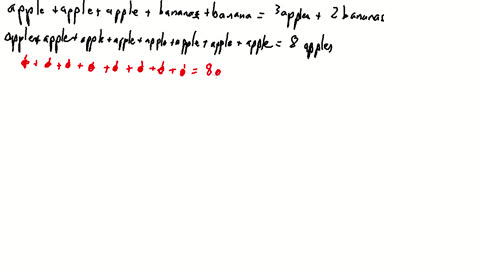 apple + apple + apple + bananas + banana = 3 apples + 2 bananas
apple + apple + apple + apple + apple + apple + apple + apple = 8 apples